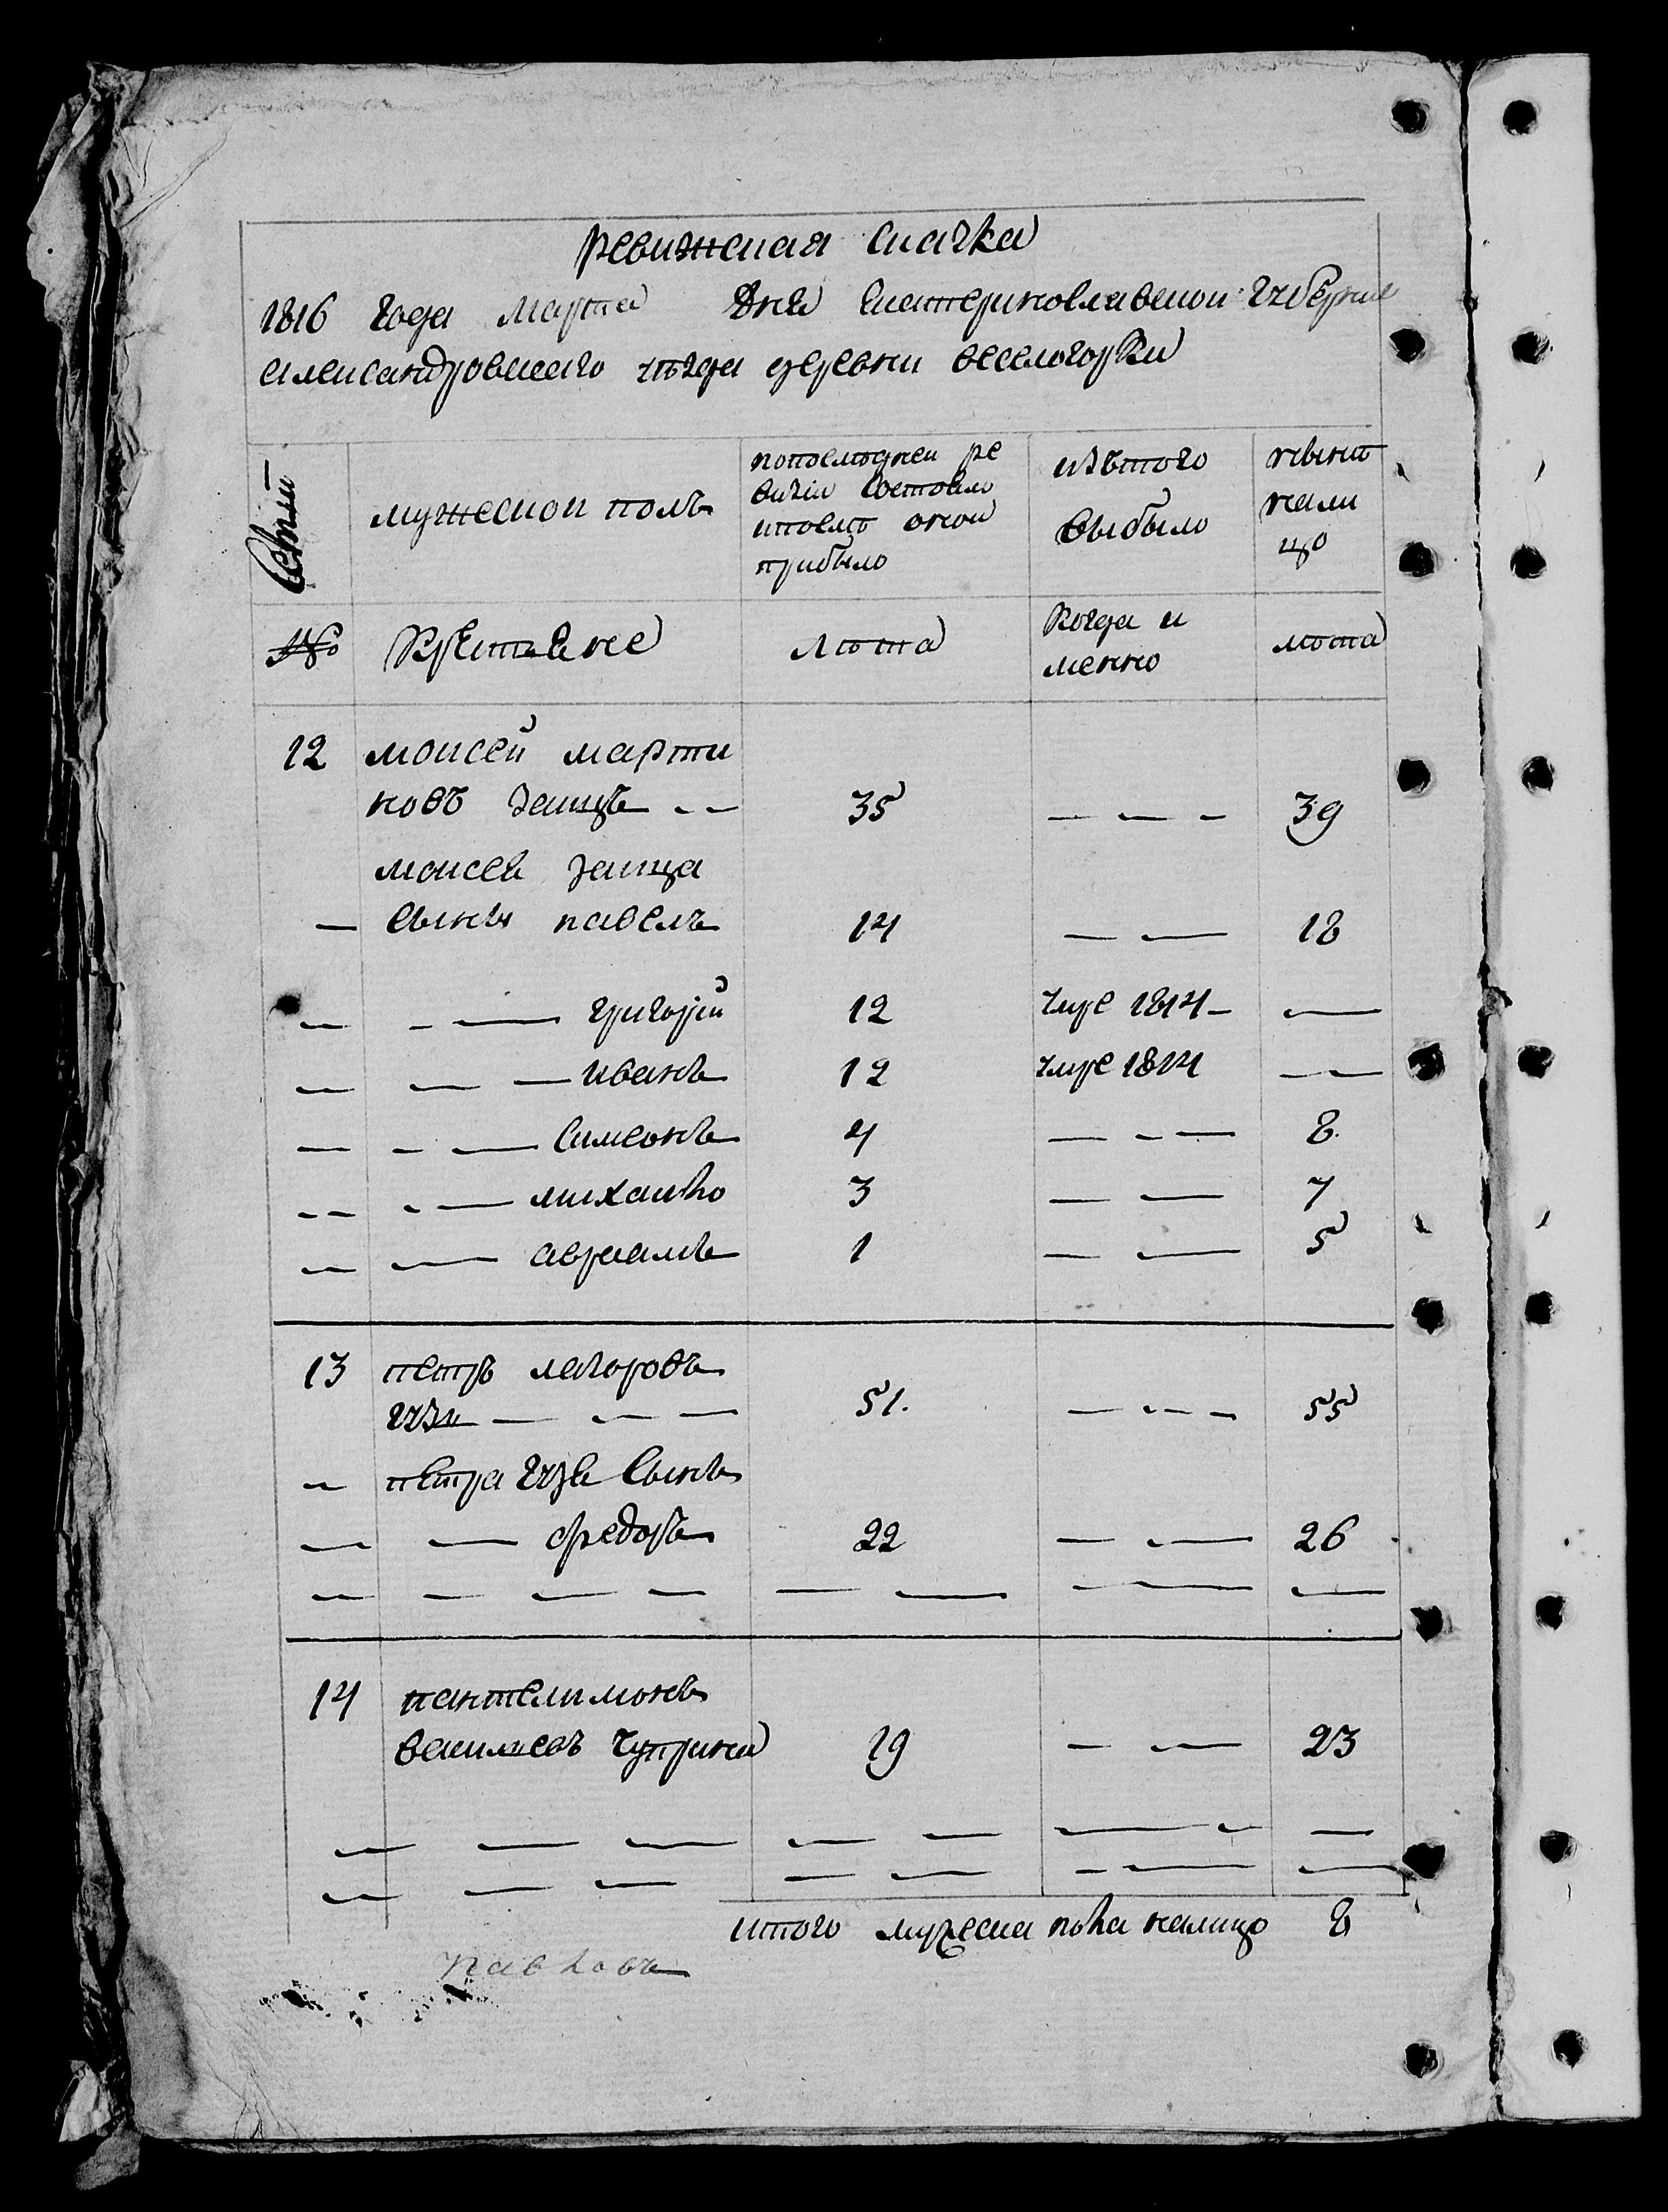 ревижская скаска
1816 года марта дня екатеринославской губернии
александровскаго уѣзда деревни веселогорки
Семьи
мужескои полъ
попослѣднеи ре
визіи состояло
ипослѣ оной
прибыло
изътого
выбыло
нынѣ
нали
цо
№
крестьяне
лѣта
когда и
менно
лѣта
12 моисей марти
новъ заицъ 35 39
моисея заица
сынъ павелъ 14 18
григорій 12 умре 1814
иванъ 12 умре 1814
симеонъ 4 8
михайло 3 7
авраамъ 1 5
13 петръ
гузь 51. 55
петра гузя сынъ
федоръ 22 26
14 пантелимонъ
васильевъ чуприна 19 23
итого мужеска пола налицо 8
павловъ